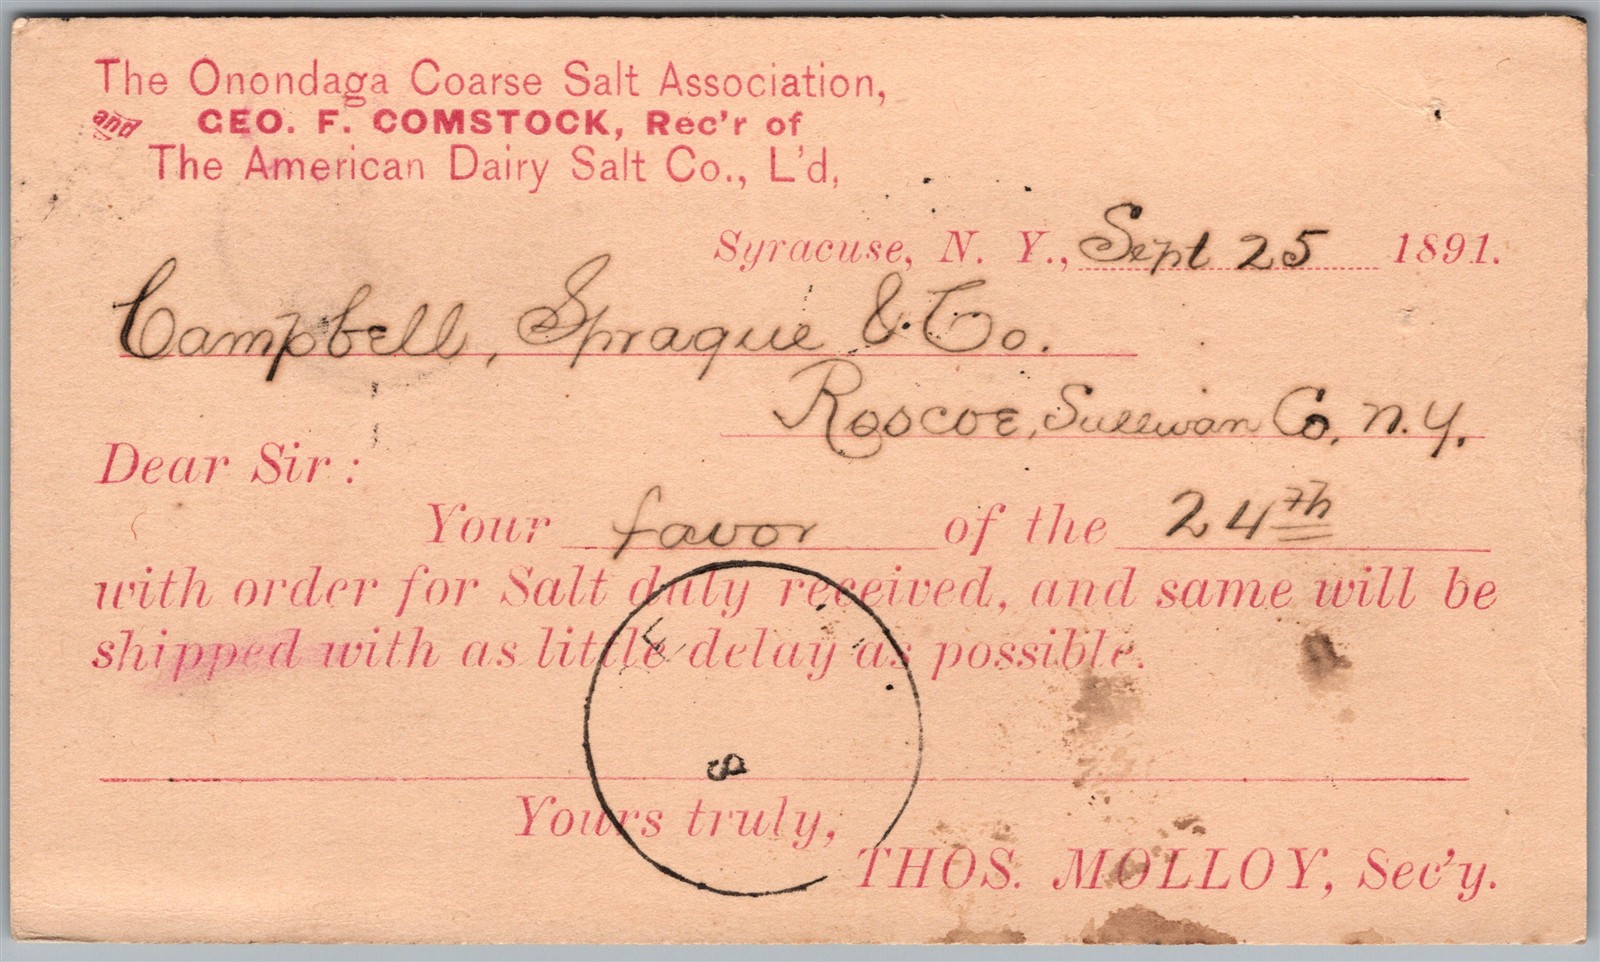 The Onondaga Coarse Salt Association,
and GEO. F. COMSTOCK, Rec'r of
The American Dairy Salt Co., L'd,
Syracuse, N. Y., Sept 25 1891.
Campbell, Sprague & Co.
Roscoe, Sullivan Co. N.Y.
Dear Sir:
Your favor of the 24th
with order for Salt duly received, and same will be
shipped with as little delay as possible.
Yours truly,
THOS. MOLLOY, Sec'y.